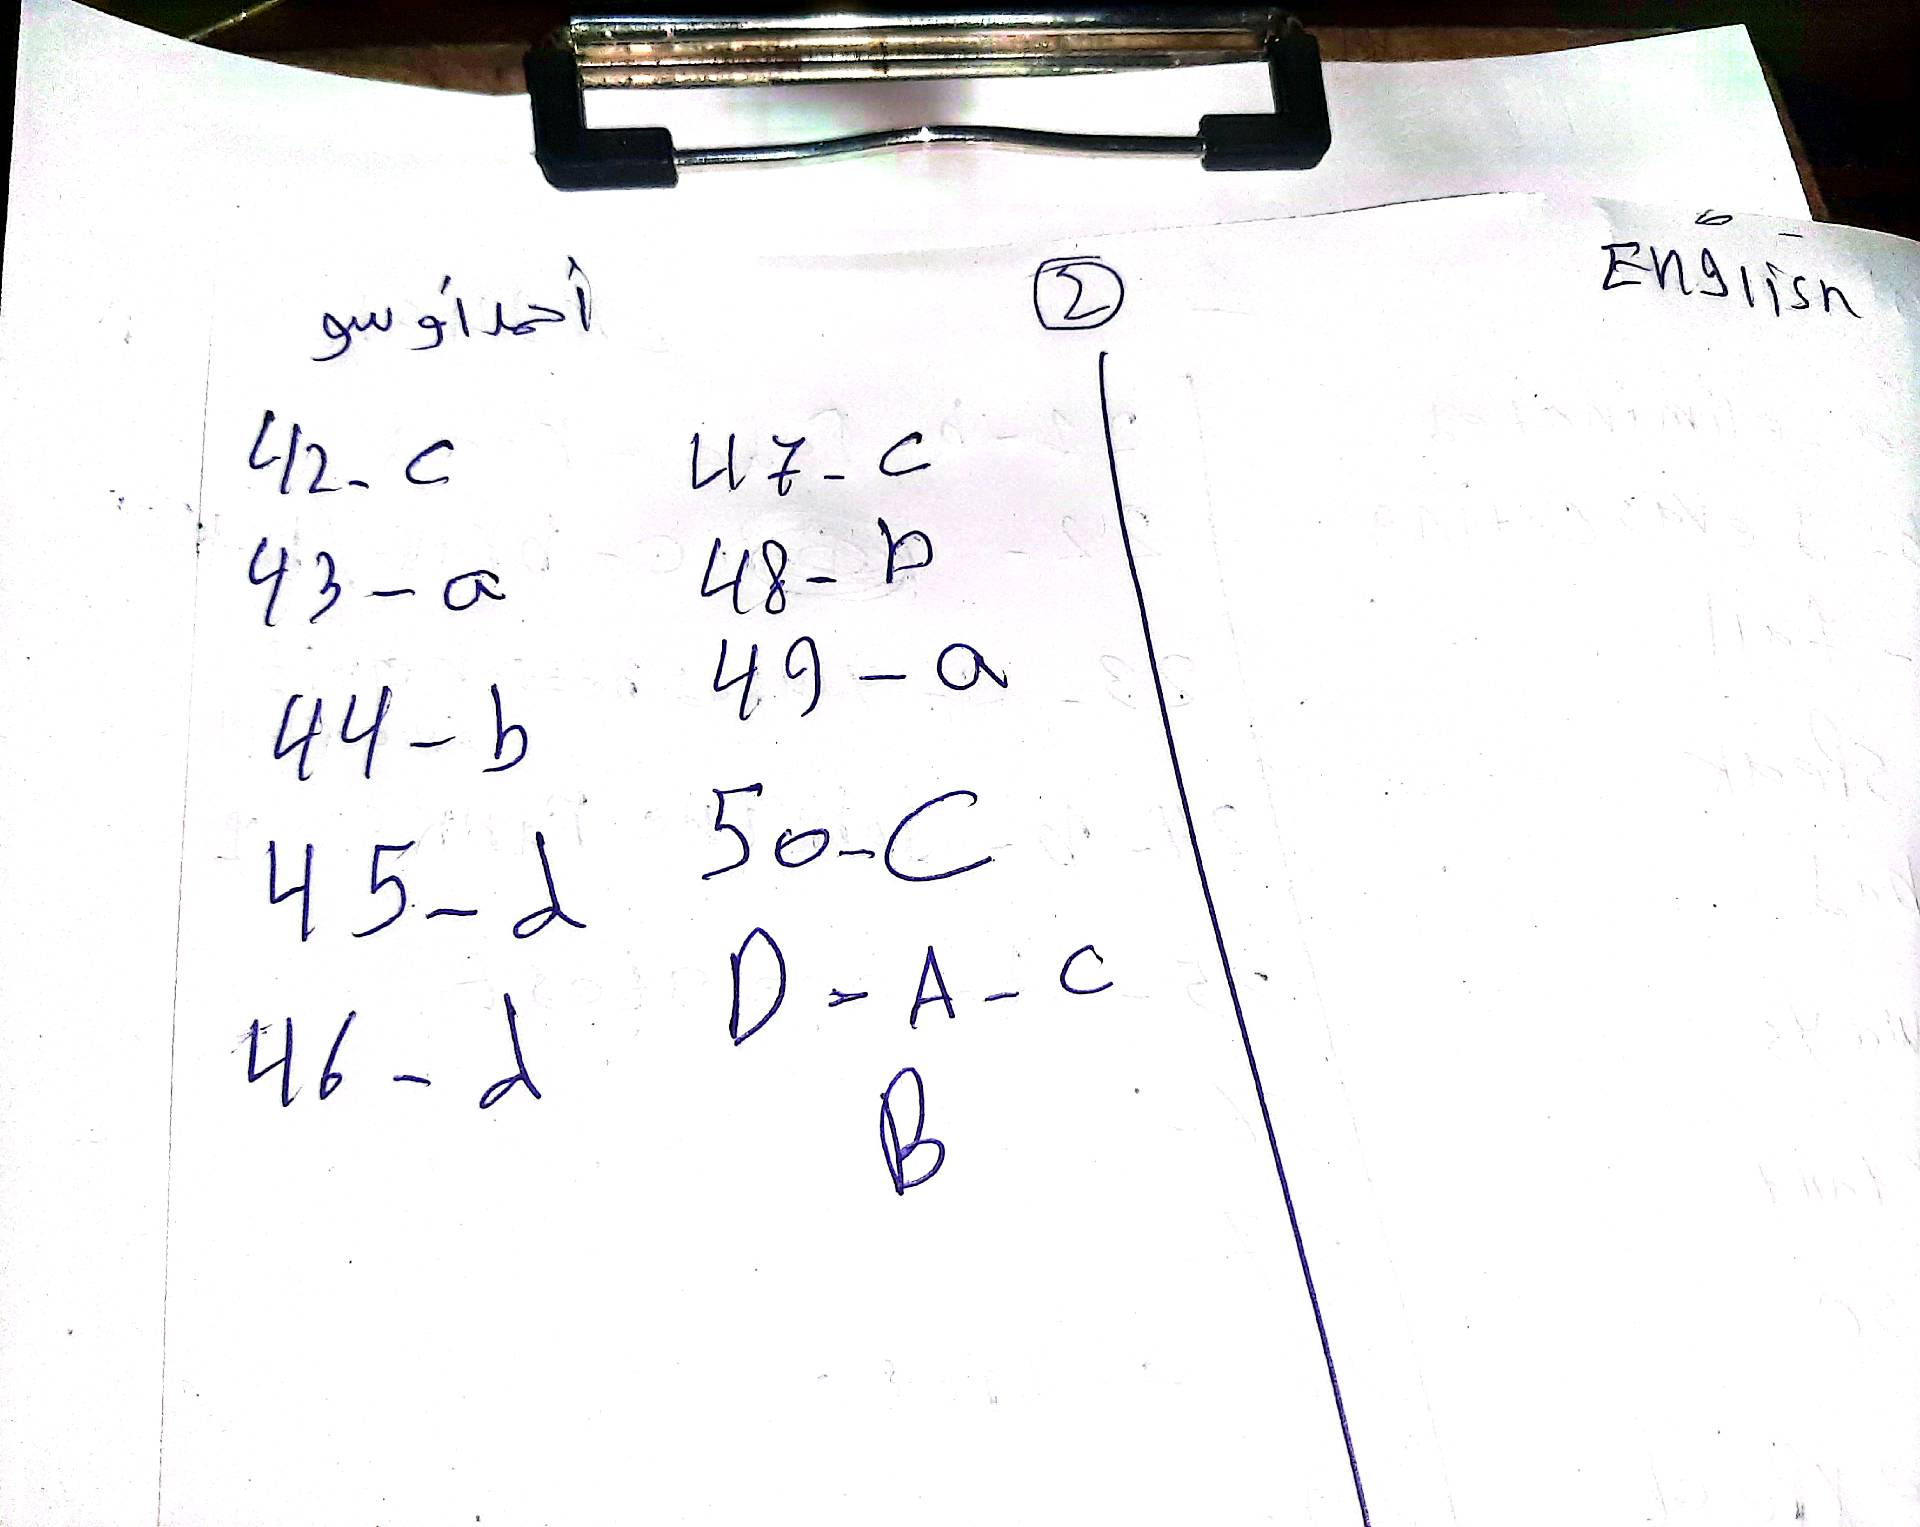 أحمد أوسو
2
English
42-c
43-a
44-b
45-d
46-d
47-c
48-b
49-a
50-C
D-A-C
B